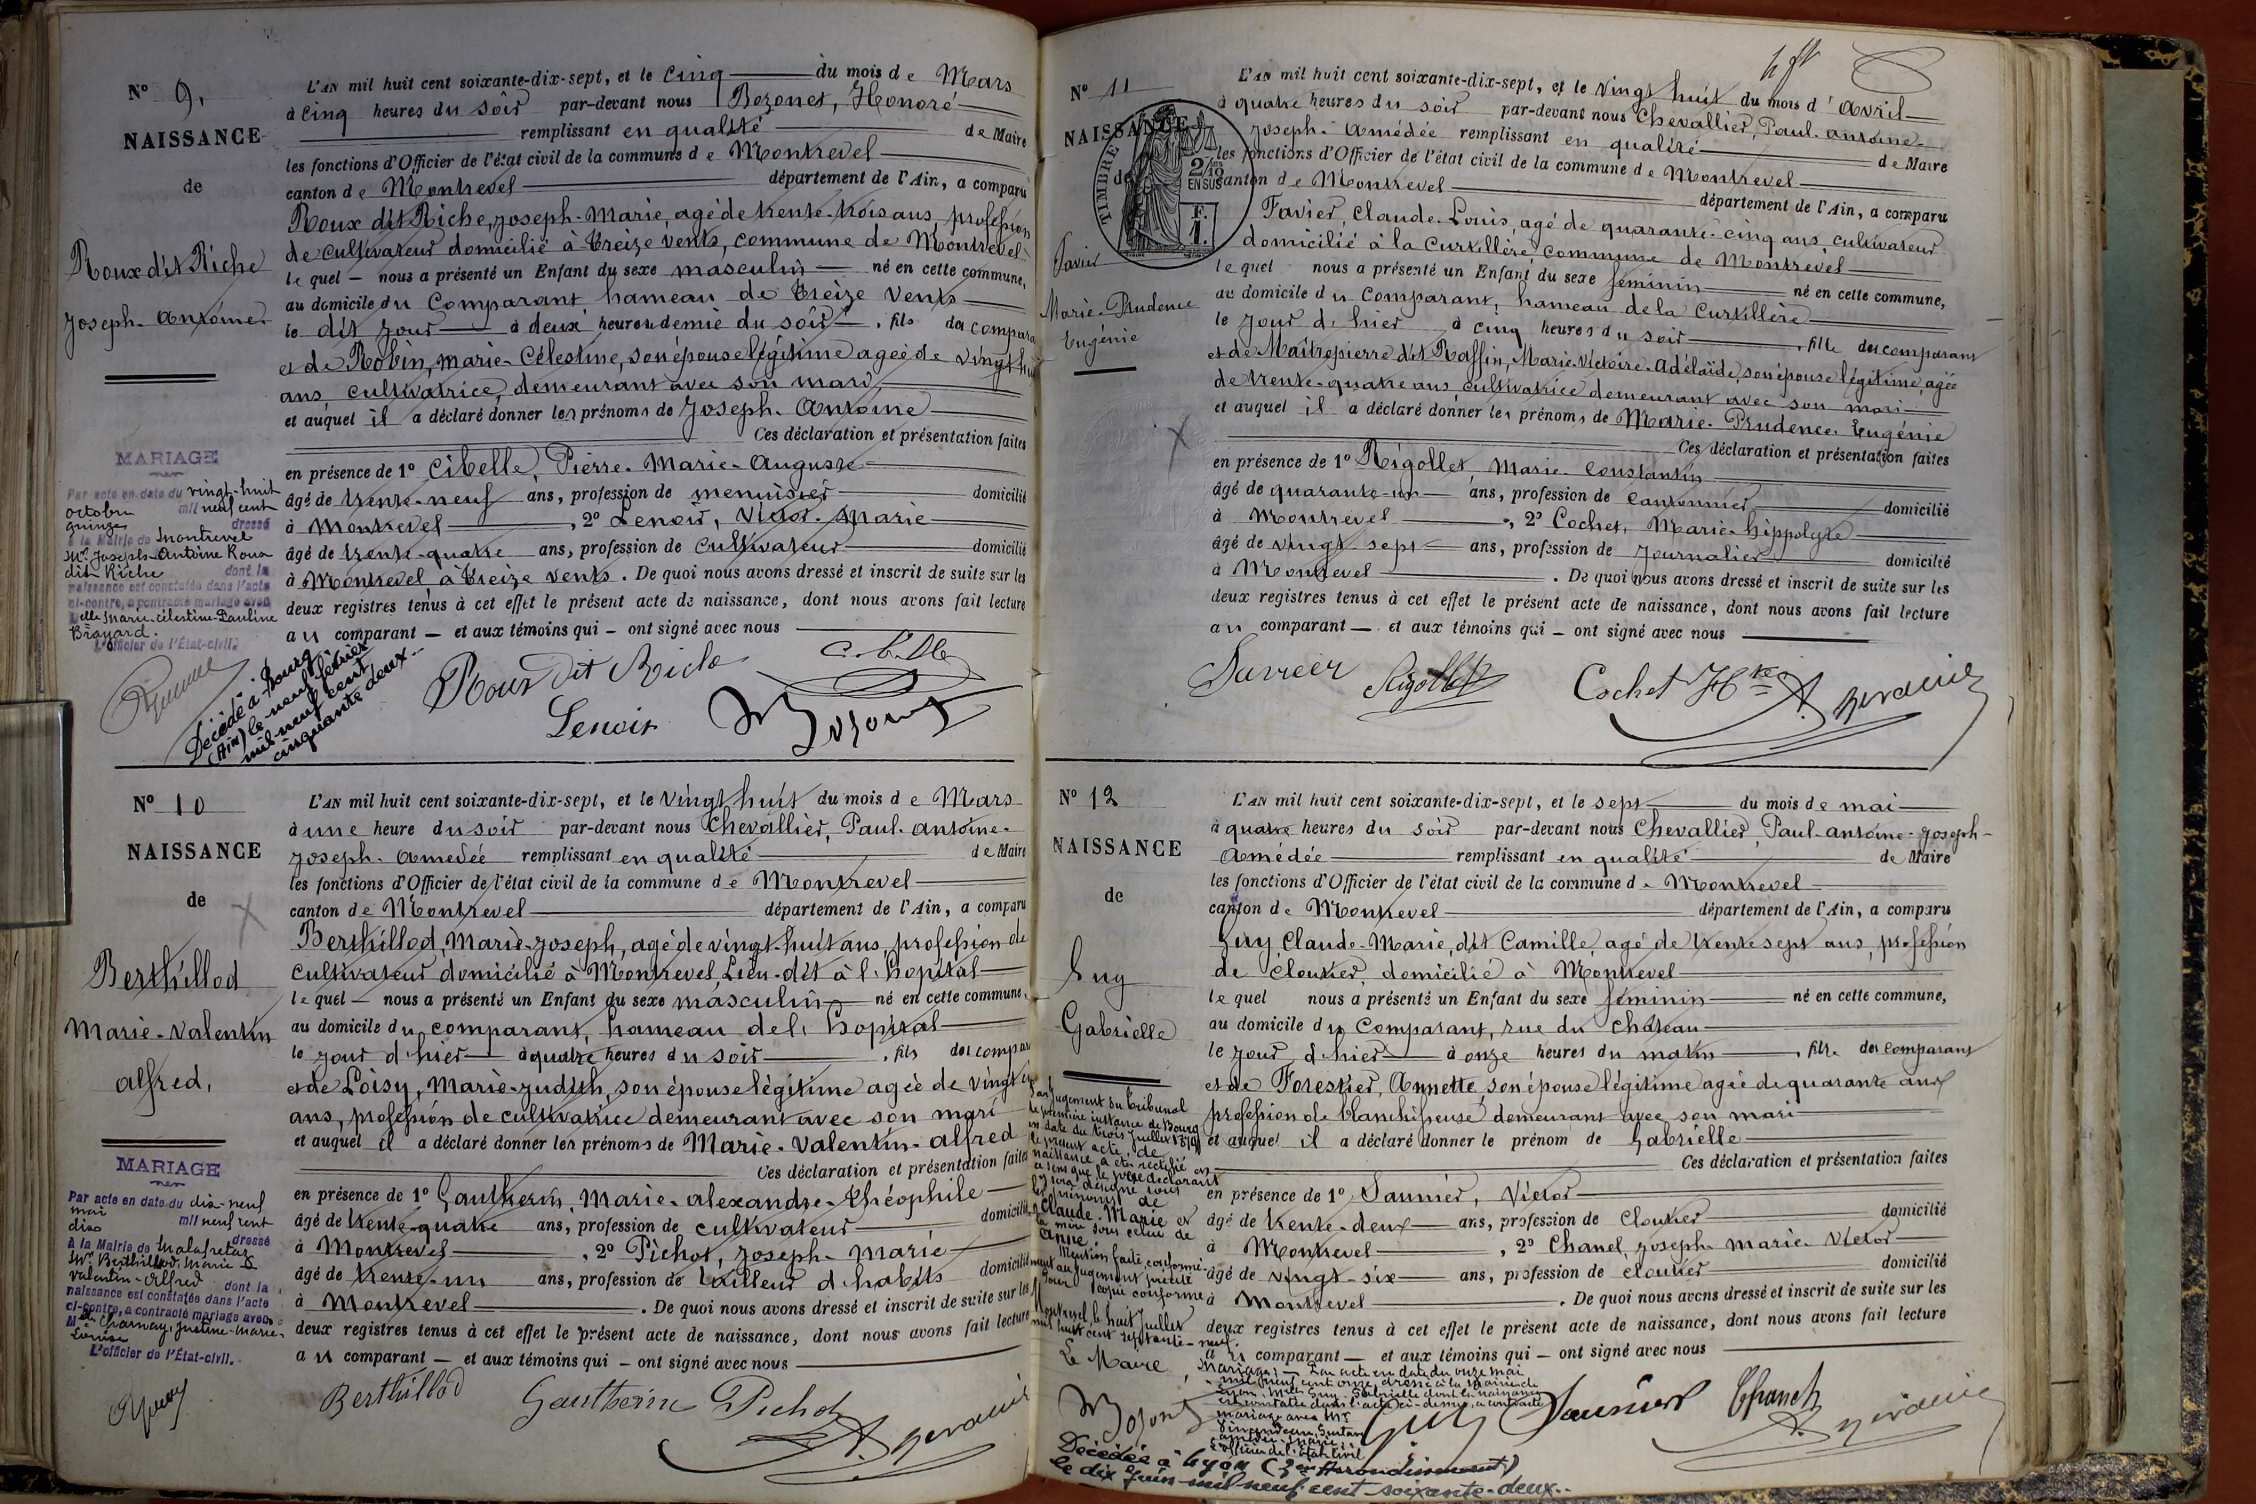 N° 9.
NAISSANCE
de
Roux dit Riche
Joseph-Antoine.
L'AN mil huit cent soixante-dix-sept, et le Cinq du mois de Mars
à cinq heures du soir par-devant nous Bozonet, Honoré
remplissant en qualité de Maire
les fonctions d'Officier de l'état civil de la commune de Montrevel
canton de Montrevel département de l'Ain, a comparu
Roux dit Riche, Joseph-Marie, agé de trente-trois ans, profession
de cultivateur domicilié à Treize vents, commune de Montrevel
lequel nous a présenté un Enfant du sexe masculin né en cette commune,
au domicile du Comparant hameau de Treize vents
le dit jour à deux heures demie du soir, fils du compara
et de Robin, Marie-Célestine, son épouse légitime agée de vingt huit
ans cultivatrice, demeurant avec son mari,
et auquel il a déclaré donner les prénoms de Joseph-Antoine
Ces déclaration et présentation faites
en présence de 1° Cibelle, Pierre-Marie-Auguste
âgé de trente-neuf ans, profession de menuisier domicilié
à Montrevel, 2° Lenoir, Victor-Marie
âgé de trente-quatre ans, profession de cultivateur domicilié
à Montrevel à Treize vents. De quoi nous avons dressé et inscrit de suite sur les
deux registres tenus à cet effet le présent acte de naissance, dont nous avons fait lecture
au comparant et aux témoins qui ont signé avec nous
MARIAGE
Par acte en date du vingt-huit
octobre mil neuf cent
quinze dressé
à la Mairie de Montrevel
Mr. Joseph-Antoine Roux
dit Riche dont la
naissance est constatée dans l'acte
ci-contre, a contracté mariage avec
Melle Marie-Célestine-Pauline
Brayard.
L'Officier de l'État-civil.
Décédé à Bourg
(Ain) le neuf février
mil neuf cent
cinquante deux.
Roux dit Riche
Lenoir
Bozonet
N° 10
NAISSANCE
de
Berthillod
Marie-Valentin
alfred,
L'AN mil huit cent soixante-dix-sept, et le vingt huit du mois de Mars
à une heure du soir par-devant nous Chevallier, Paul-antoine-
Joseph-Amedée remplissant en qualité de Maire
les fonctions d'Officier de l'état civil de la commune de Montrevel
canton de Montrevel département de l'Ain, a comparu
Berthillod, Marie-Joseph, agé de vingt-huit ans, profession de
cultivateur domicilié à Montrevel, Lieu-dit à l'hopital
lequel nous a présenté un Enfant du sexe masculin né en cette commune,
au domicile du comparant, hameau de l'hopital
le jour d'hier à quatre heures du soir, fils du compar
et de Loisy, Marie-Judith, son épouse légitime agée de vingt
ans, profession de cultivatrice demeurant avec son mari
et auquel il a déclaré donner les prénoms de Marie-Valentin-alfred
Ces déclaration et présentation faites
en présence de 1° Gautherin, Marie-alexandre-théophile
âgé de trente-quatre ans, profession de cultivateur domicilié
à Montrevel, 2° Pichot, Joseph-Marie
âgé de trente-un ans, profession de tailleur d'habits domicilié
à Montrevel. De quoi nous avons dressé et inscrit de suite sur les
deux registres tenus à cet effet le présent acte de naissance, dont nous avons fait lecture
au comparant et aux témoins qui ont signé avec nous
MARIAGE
Par acte en date du dix-neuf
mai mil neuf cent
dix dressé
à la Mairie de Malafretaz
Mr. Berthillod, Marie
Valentin-Alfred dont la
naissance est constatée dans l'acte
ci-contre, a contracté mariage avec
Melle Charnay, Justine-Marie-
Louise
L'officier de l'État-civil.
Berthillod Gautherin Pichot
N° 11
NAISSANCE
de
TIMBRE
2/10 es
EN SUS
F.
1.
Favier
Marie-Prudence
Eugénie
L'AN mil huit cent soixante-dix-sept, et le vingt huit du mois d'avril
à quatre heures du soir par-devant nous Chevallier, Paul-antoine-
Joseph-Amédée remplissant en qualité de Maire
les fonctions d'Officier de l'état civil de la commune de Montrevel
canton de Montrevel département de l'Ain, a comparu
Favier, Claude-Louis, agé de quarante-cinq ans, cultivateur
domicilié à la Curtillère, commune de Montrevel
lequel nous a présenté un Enfant du sexe féminin né en cette commune,
au domicile du Comparant, hameau de la Curtillère
le jour d'hier à cinq heures du soir, fille du comparant
et de Maîtrepierre dit Raffin, Marie-Victoire-Adélaïde, son épouse légitime, agée
de trente-quatre ans, cultivatrice demeurant avec son mari
et auquel il a déclaré donner les prénoms de Marie-Prudence-Eugénie
Ces déclaration et présentation faites
en présence de 1° Rigollet, Marie-Constantin
âgé de quarante-un ans, profession de Cantonnier domicilié
à Montrevel, 2° Cochet, Marie-hippolyte
âgé de vingt-sept ans, profession de Journalier domicilié
à Montrevel. De quoi nous avons dressé et inscrit de suite sur les
deux registres tenus à cet effet le présent acte de naissance, dont nous avons fait lecture
au comparant et aux témoins qui ont signé avec nous
Favier Rigollet Cochet Hte
N° 12
NAISSANCE
de
Guy
Gabrielle
L'AN mil huit cent soixante-dix-sept, et le sept du mois de mai
à quatre heures du soir par-devant nous Chevallier, Paul-antoine-Joseph-
Amédée remplissant en qualité de Maire
les fonctions d'Officier de l'état civil de la commune de Montrevel
canton de Montrevel département de l'Ain, a comparu
Guy Claude-Marie, dit Camille, agé de trente sept ans, profession
de cloutier, domicilié à Montrevel
lequel nous a présenté un Enfant du sexe féminin né en cette commune,
au domicile du Comparant, rue du château
le jour d'hier à onze heures du matin, fille du comparant
et de Forestier, Annette, son épouse légitime agée de quarante ans
profession de blanchisseuse demeurant avec son mari
et auquel il a déclaré donner le prénom de Gabrielle
Ces déclaration et présentation faites
en présence de 1° Saunier, Victor
âgé de trente-deux ans, profession de Cloutier domicilié
à Montrevel, 2° Chanel, Joseph-Marie-Victor
âgé de vingt-six ans, profession de cloutier domicilié
à Montrevel. De quoi nous avons dressé et inscrit de suite sur les
deux registres tenus à cet effet le présent acte de naissance, dont nous avons fait lecture
au comparant et aux témoins qui ont signé avec nous
Par jugement du Tribunal
de première instance de Bourg
en date du trois Juillet 1879
le présent acte de
naissance a été rectifié en
ce sens que le père déclarant
y sera désigné sous
les prénoms de
Claude-Marie et
la mère sous celui de
Anne.
Mention faite conformé-
ment au jugement précité
Pour copie conforme
Montrevel, le huit Juillet
mil huit cent septante-neuf.
Le Maire
Bozonet
Mariage: Par acte en date du onze mai
mil neuf cent onze dressé à la Mairie de
Lyon, Melle Guy Gabrielle dont la naissance
est constatée dans l'acte ci-dessus, a contracté
mariage avec Mr
L'officier de l'État Civil
Guy Saunier
Décédée à Lyon (3eme Arrondissement)
le dix Juin mil neuf cent soixante-deux.